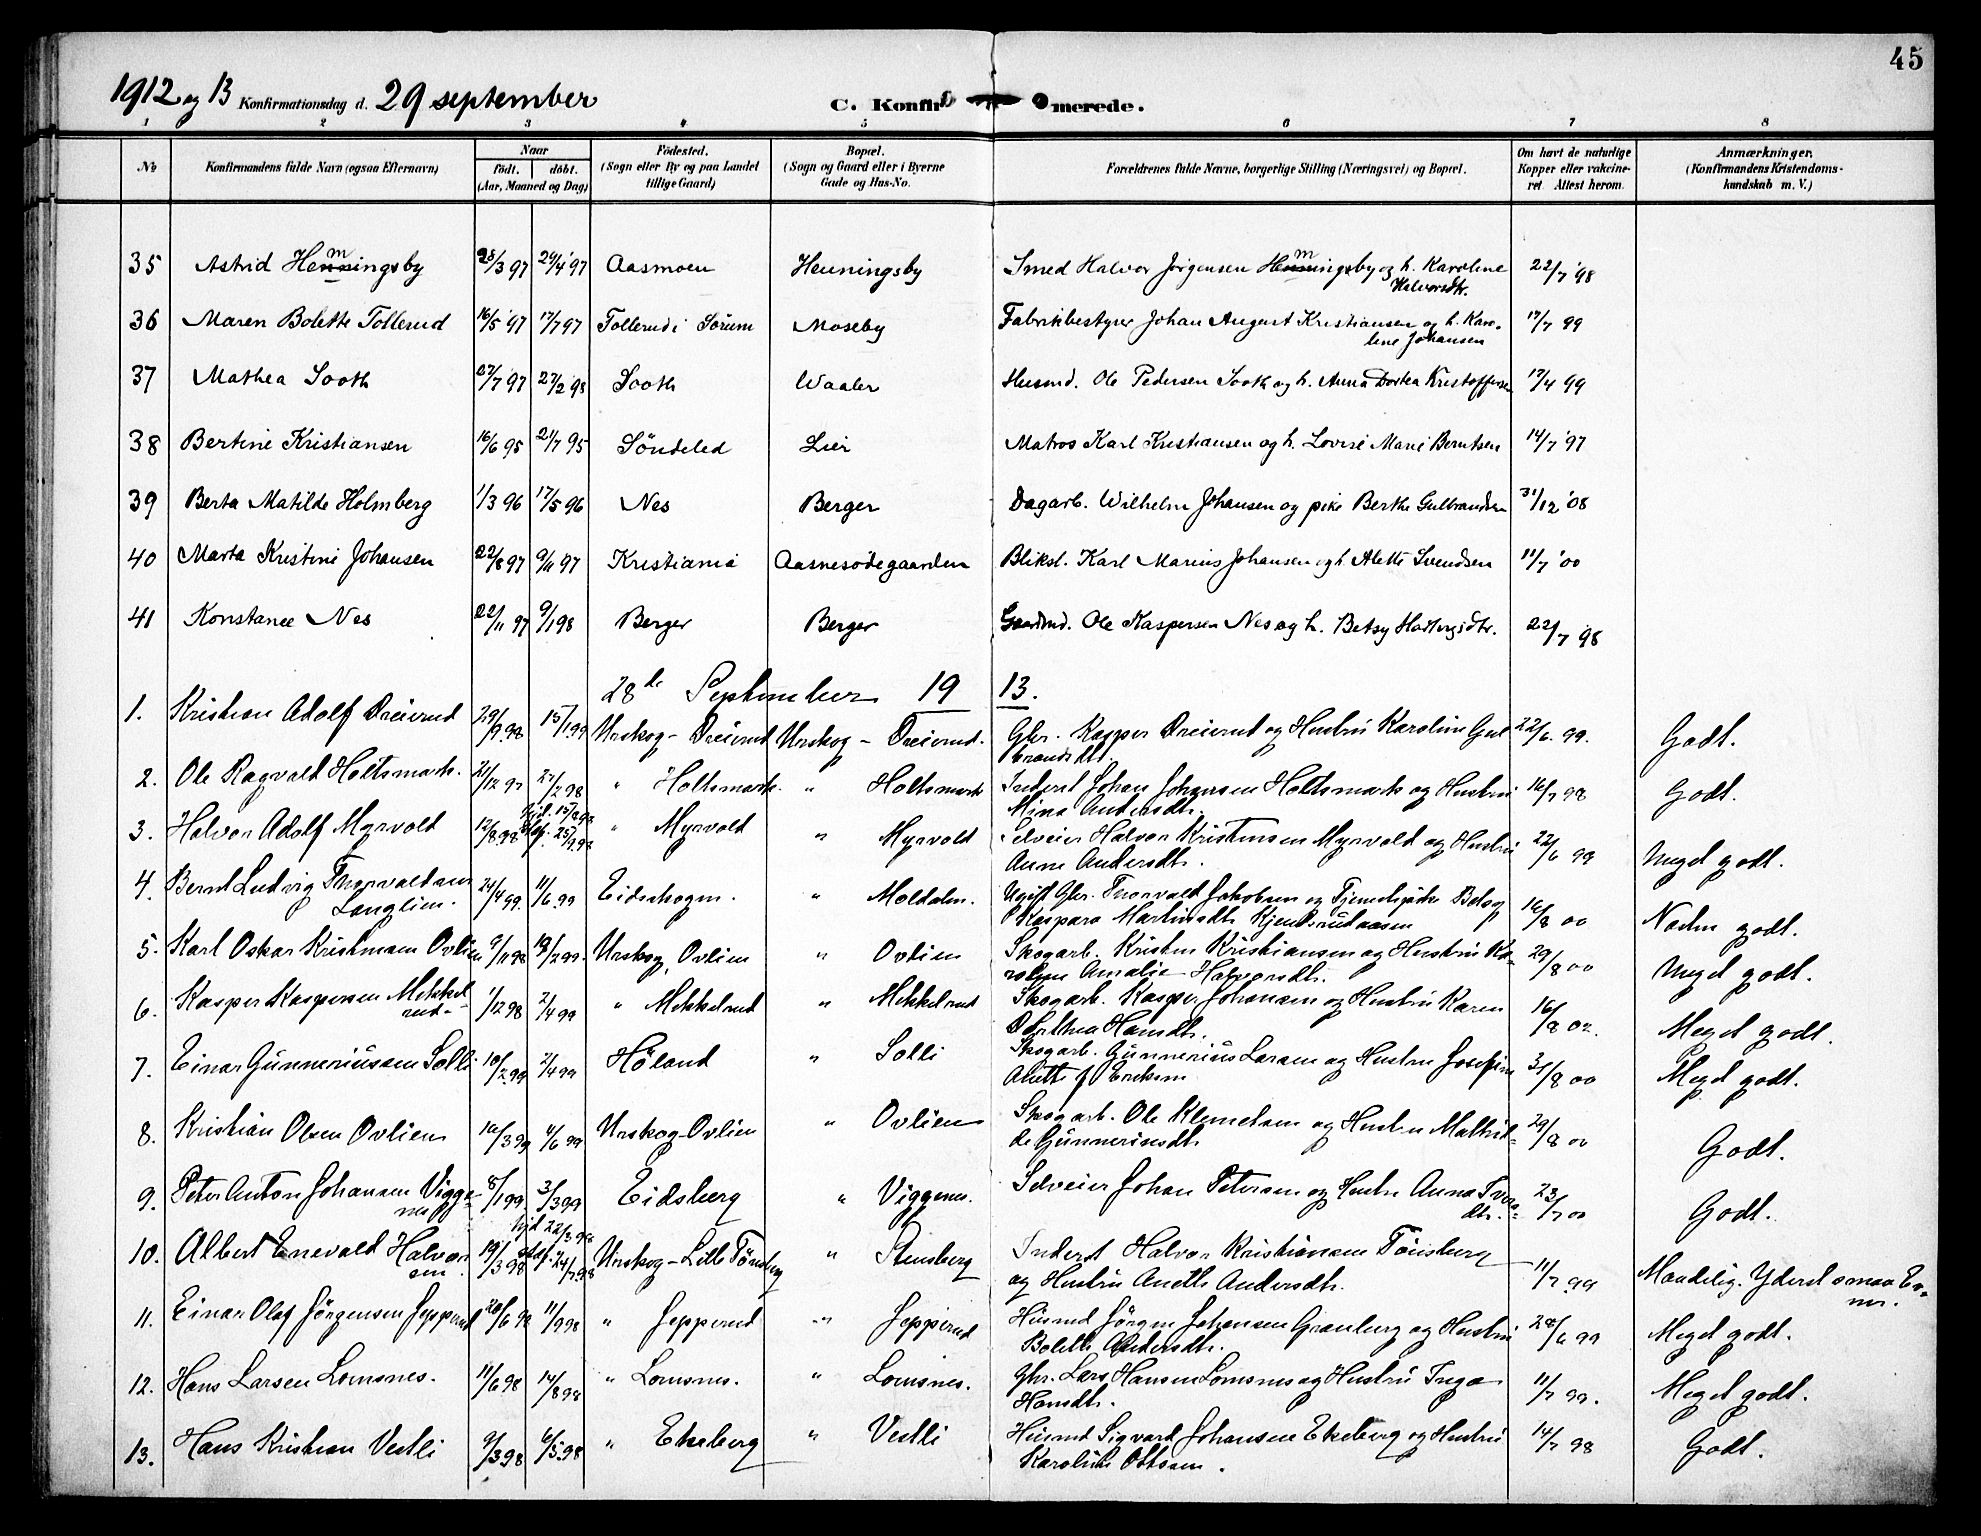 45
1912 og 13 Konfirmationsdag d. 29 september C. Konfirmerede.
1 2 3 4 5 6 7 8
No Konfirmandens fulde Navn (ogsaa Efternavn) Naar født. døbt. (Aar, Maaned og Dag) Fødested. (Sogn eller By og paa Landet tillige Gaard) Bopæl. (Sogn og Gaard eller i Byerne Gade og Hus-No. Forældrenes fulde Navne, borgerlige Stilling (Næringsvei) og Bopæl. Om havt de naturlige Kopper eller vakcineret Attest herom. Anmærkninger. (Konfirmandens Kristendomskundskab m. V.)
35 Astrid Hemmingsby 28/3 97 29/4 '97 Aasmoen Henningsby Smed Halvor Jørgensen Hemmingsby og h. Karoline 22/7 '98
Halvorsdtr.
36 Maren Bolette Tollerud 16/5 '97 17/7 97 Tollerud i Sørum Moseby Fabrikbestyrer Johan August Kristiansen og h. Karo- 17/7 99
line Johansen
37 Mathea Sooth 27/7 97 27/2 98 Sooth Waaler Husmd. Ole Pedersen Sooth og h. Anna Dortea Kristoffersen 17/4 99
38 Bertine Kristiansen 16/6 95 21/7 95 Søndeled Lier Matros Karl Kristiansen og h. Lovise Marie Berntsen 14/7 '97
39 Berta Matilde Holmberg 1/3 96 17/5 96 Nes Berger Dagarb. Wilhelm Johansen og pike Berthe Gulbrandsen 31/12 '08
40 Marta Kristine Johansen 22/8 97 9/11 97 Kristiania Aasnesødegaarden Bliksl. Karl Marius Johansen og h. Alette Svendsen 11/7 '00
41 Konstance Nes 22/11 97 9/1 98 Berger Berger Gaardmd. Ole Kaspersen Nes og h. Betsy Hartvigsdtr. 22/7 98
28de September 1913.
1. Kristian Adolf Dreierud 29/9 98 15/1 99 Urskog - Dreierud Urskog - Dreierud. Gbr. Kasper Dreierud og Hustru Karoline Gul 22/6. 99. Godt.
brandsdt.
2. Ole Ragvald Holtsmark. 21/12 97 27/2 98 " Holtsmark. " Holtsmark Inderst Johan Johansen Holtsmark og Hustru 16/7 98 Godt.
Mina Andersdt.
3. Halvor Adolf Myrvold 12/8 98 hjd. 15/8 98 staf. 25/9 98 " Myrvold " Myrvold Selveier Halvor Kristensen Myrvold og Hustru 22/6 99 Meget godt.
Anne Andersdt.
4. Bernt Ludvig Thorvaldsen 24/4 99. 11/6 99 Eidskogen. " Moldalen. Ugift Gbr. Thorvald Jakobsen og Tjenestpike Betsy 16/8 00 Noden godt.
Langlien. Kaspara Martinsdt.
5. Karl Oskar Kristiansen Ovlien 9/11 98 19/2 99. Urskog, Ovlien " Ovlien Skogarb. Kristen Kristiansen og Hustru Ka- 29/8 00 Meget godt.
roline Amalie Halvorsdt.
6. Kasper Kaspersen Mekkel 1/12 98 2/4 99 " Mekkelrud " Mekkelrud Skogarb. Kasper Johansen og Hustru Karen 16/8 02. Meget godt.
rud. Dorthea Hansdt.
7. Einar Gunneriussen Solli 10/2 99 2/4 99 Høland " Solli Skogarb. Gunnerius Larsen og Hustru Josefine 31/8 00 Meget godt.
Anette f. Eriksen
8. Kristian Olsen Ovlien 10/3 99 4/6 99 Urskog-Ovlien " Ovlien Skogarb. Ole Klemetsen og Hustru Mathil- 29/8 00 Godt.
de Gunneriusdt.
9. Peter Anton Johansen Vigge- 8/1 99. 3/3 99 Eidsberg " Viggenes. Selveier Johan Petersen og Hustru Anna 23/7 00 Godt.
nes dtr.
10. Albert Enevald Halvor 19/3 98 hjd 22/3 98 staf. 24/7 98 Urskog - Lille Tønsberg " Stensberg Inderst Halvor Kristiansen Tønsberg 11/7 99 Maadelig. Yderst smaa Ev-
sen. og Hustru Anette Andersdt. ner.
11. Einar Olaf Jørgensen Jepperud 20/6 98 11/9 98 " Jepperud " Jepperud Husmd Jørgen Johansen Granberg og Hustru 28/6 99 Meget godt.
Bolette Andersdt.
12. Hans Larsen Lomsnes. 11/6 98 14/8 98 " Lomsnes. " Lomsnes. Gbr. Lars Hansen Lomsnes og Hustru Inga 11/7 99. Meget godt.
Hansdt.
13. Hans Kristian Vestli 9/3 98 6/5 98 " Ekeberg " Vestli Husmd Sigvard Johansen Ekeberg og Hustru 14/7 98 Godt.
Karoline Ottosen.